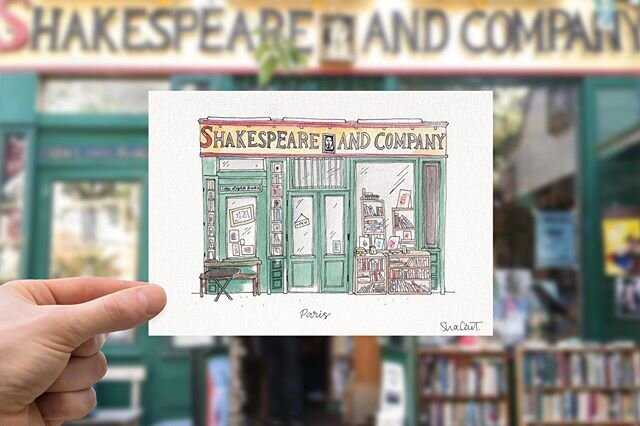 SHAKESPEARE AND COMPANY
SHAKESPEARE AND COMPANY
Paris